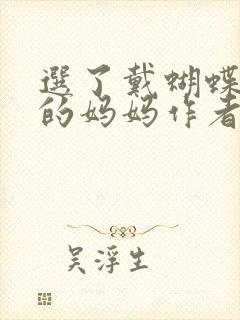 選了戴蝴蝶
的妈妈作者
吴浮生